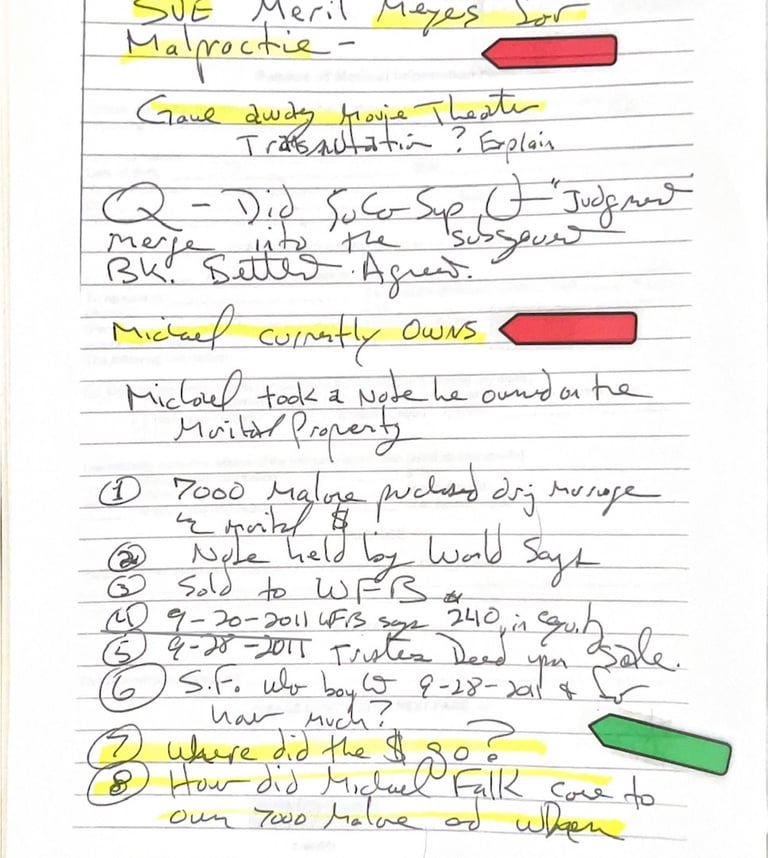 SUE Meril Meyes for
Malproctie -
Gave away Movie Theater
? Explain
Q - Did SoCo Sup Ct "Judgment
merge into the subsequent
BK. Settlet. Agreet.
Michael currently OWNS
Michael took a Note he owned on the
Marital Property
① 7000 Malone purchased drg marriage
marital $
② Note held by World Savgs
③ Sold to WFB
④ 9-20-2011 WFB says 240, in equity
⑤ 9-28-2011 Trustees Deed upon Sale.
⑥ S.F. who bought 9-28-2011 & for
how much?
⑦ Where did the $ go?
⑧ How did Michael Falk come to
own 7000 Malone and when